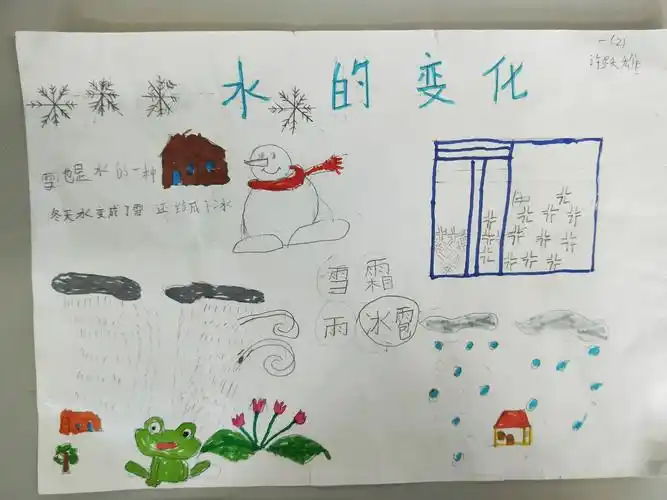 一(2)
水的变化
雪也是水的一种
冬天水变成了雪 还结成了冰
雪 霜
雨 冰雹